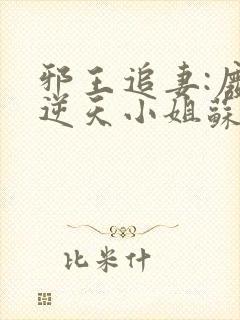 邪王追妻:廢
逆天小姐蘇
比米什